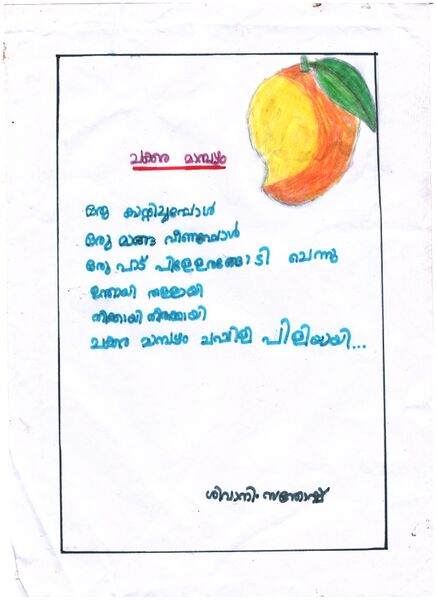 ചക്കര മാമ്പഴം
ഒരു കാറ്റടിച്ചപ്പോൾ
ഒരു മാങ്ങ വീണപ്പോൾ
ഒരുപാട് പിള്ളേരങ്ങോടി ചെന്നു
ഉന്തായി തള്ളായി
നീക്കായി നിരക്കായി
ചക്കര മാമ്പഴം ചപ്ലിപിലിയായി...
ശിവാനി സന്തോഷ്